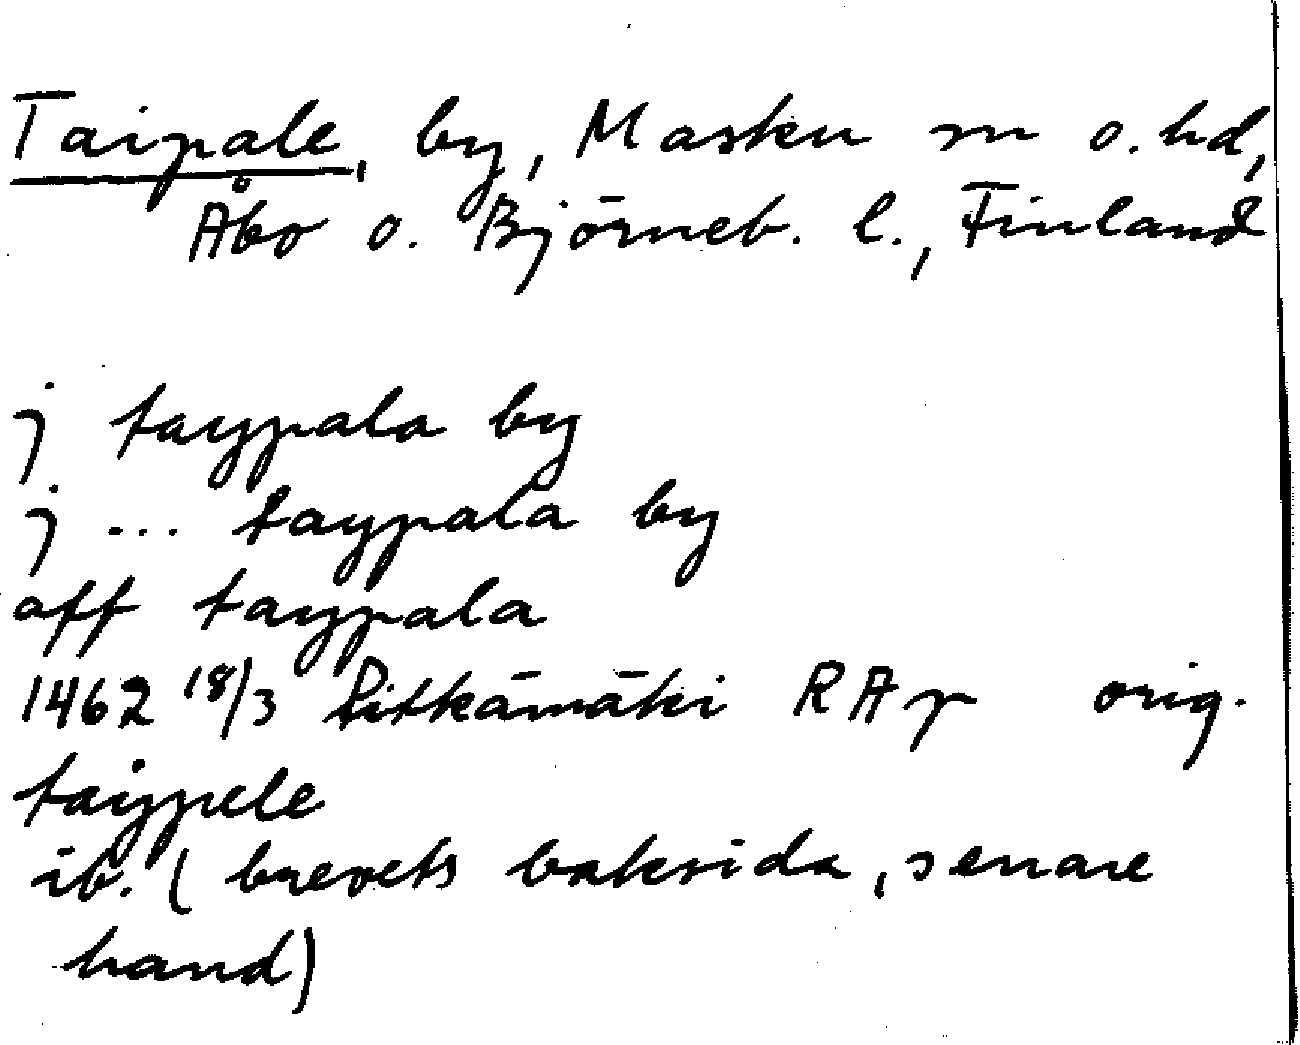 Taipale, by, Masku sn o. hd,
Åbo o. Björneb. l., Finland
j taypala by
j ... taypala by
aff taypala
1462 18/3 Pitkämäki RAp orig.
taijpele
ib. (brevets baksida, senare
hand)